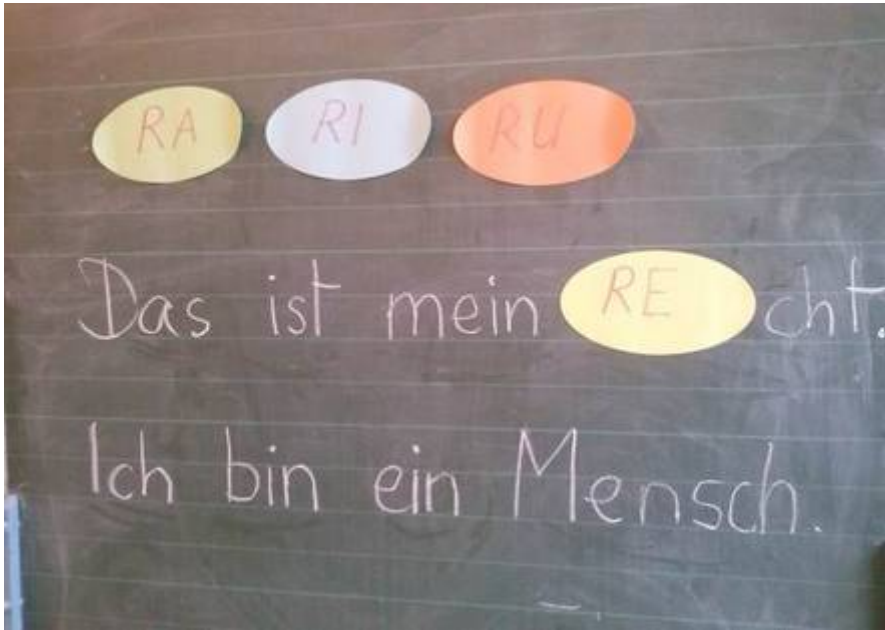 RA RI RU
Das ist mein REcht.
Ich bin ein Mensch.